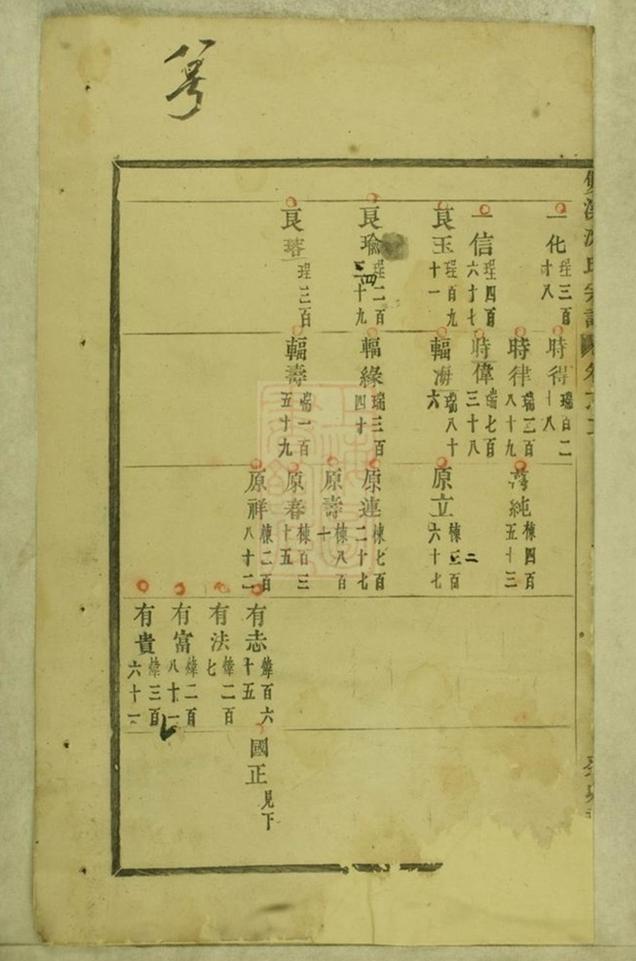 一化 珵三百才八
一信 珵四百六才七
良玉 珵百九十一
良瑜 珵二百三十九 四
良瑃 珵三百
時得 瑞百二十八
時律 瑞二百八十九
時偉 瑞七百三十八
輻海 瑞八十六
輻緣 瑞三百四才
輻壽 瑞一百五十九
純 棟四百五十三
原立 棟三百六十七 二
原連 棟七百二十七
原壽 棟八百十
原春 棟百三十五
原祥 棟二百八十二
有志 煒百六十五
有法 煒二百七
有富 煒二百八十一
有貴 煒三百六十一
國正 見下